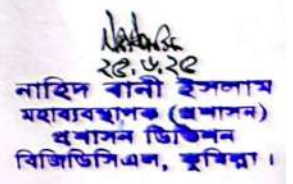 ২৫.৬.২৫
নাহিদ বানী ইসলাম
মহাব্যবস্থাপক (প্রশাসন)
প্রশাসন ডিভিশন
বিজিডিসিএল, কুমিল্লা।